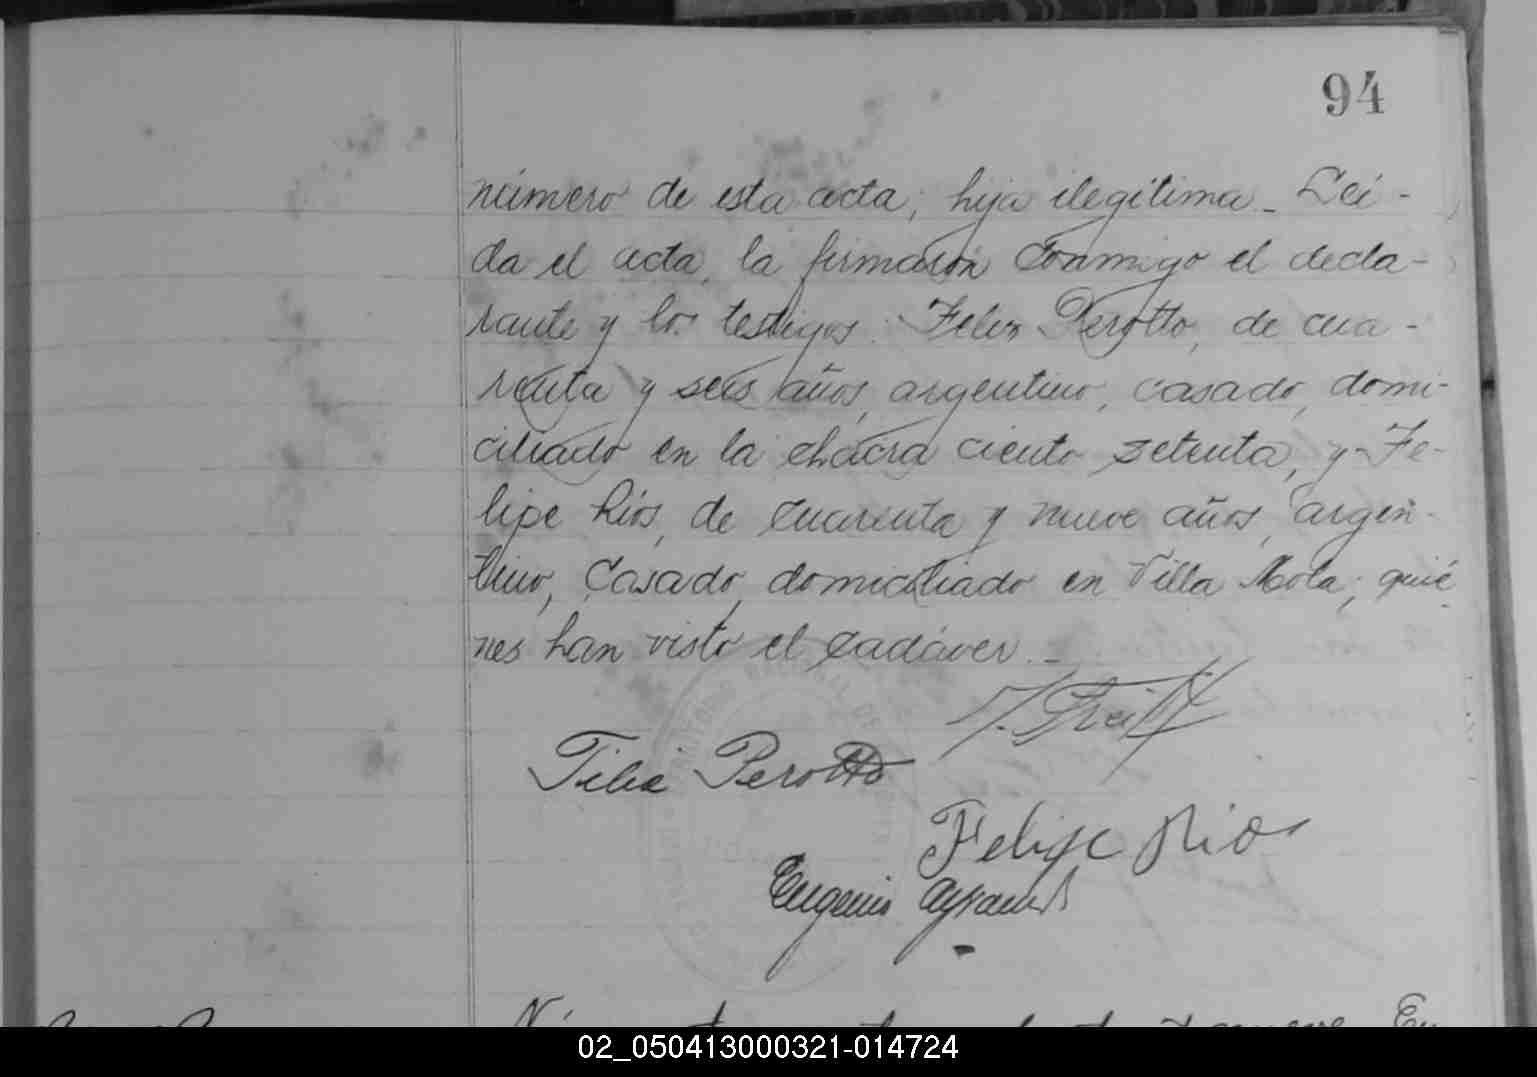 94
número de esta acta; hija ilegítima_ Leí-
da el acta, la firmaron conmigo el decla-
rante y los testigos: Felix Perotto, de cua-
renta y seis años, argentino, casado, domi-
ciliado en la chacra ciento setenta, y Fe-
lipe Ríos, de cuarenta y nueve años, argen-
tino, casado, domiciliado en Villa Mota; quié
nes han visto el cadáver._
Perotto
Felipe Rios
Eugenio
02_050413000321-014724